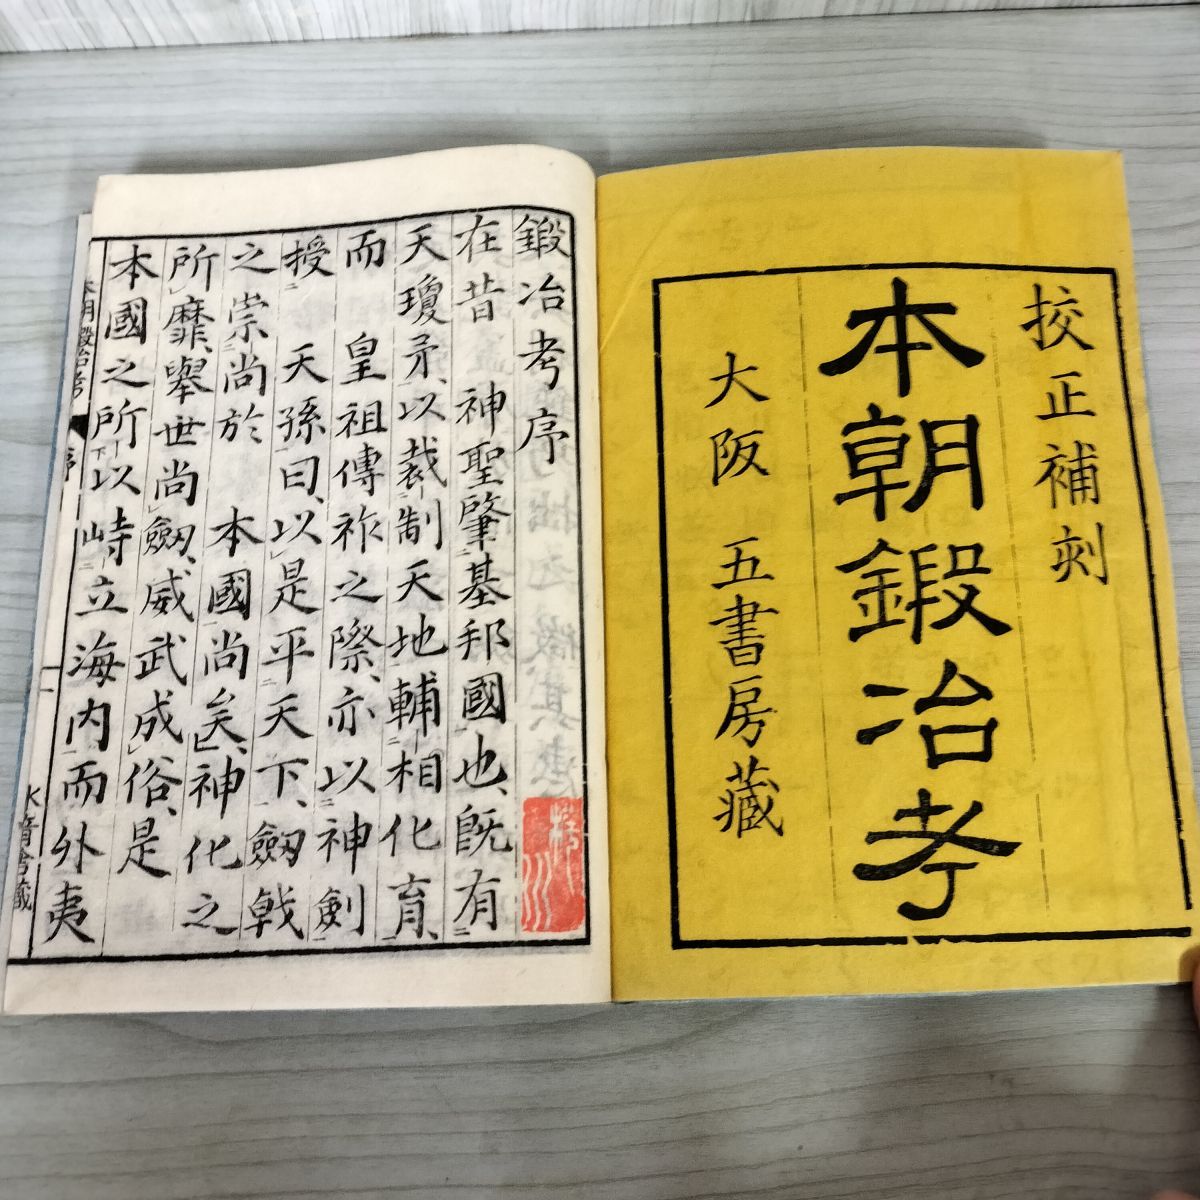 挍正補刻
本朝鍛冶考
大阪 五書房藏
鍛冶考序
在昔 神聖肇基邦國也、既有
天瓊矛、以裁制天地輔相化育、
而 皇祖傳祚之際、亦以神劍
授 天孫曰、以是平天下、劔戟
之崇尚於 本國尚矣、神化之
所靡、舉世尚劔、威武成俗、是
本國之所以峙立海內而外夷
本朝鍛冶考 序 一